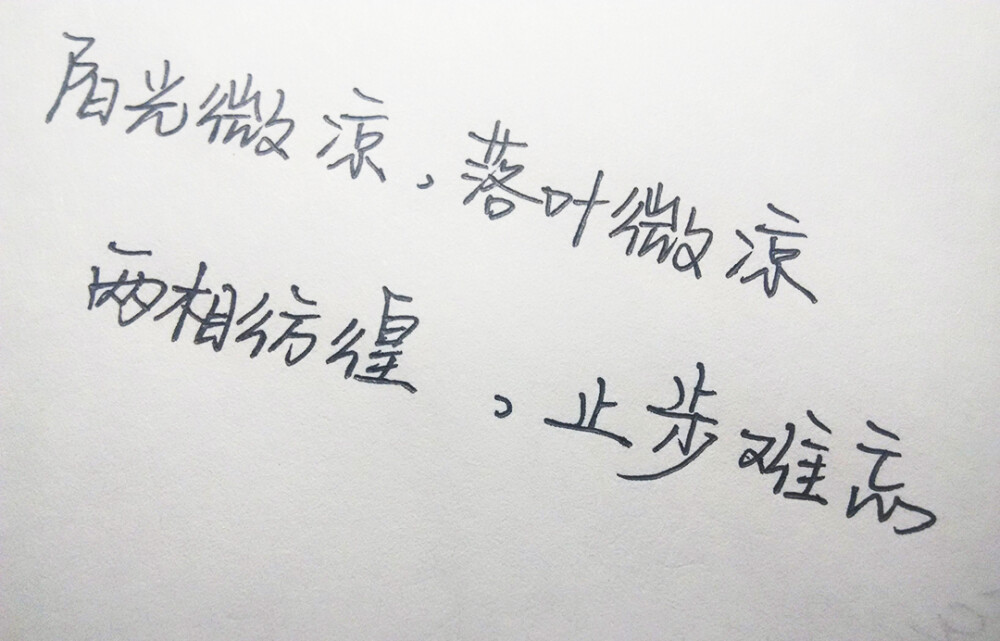 阳光微凉,落叶微凉
两相彷徨,止步难忘